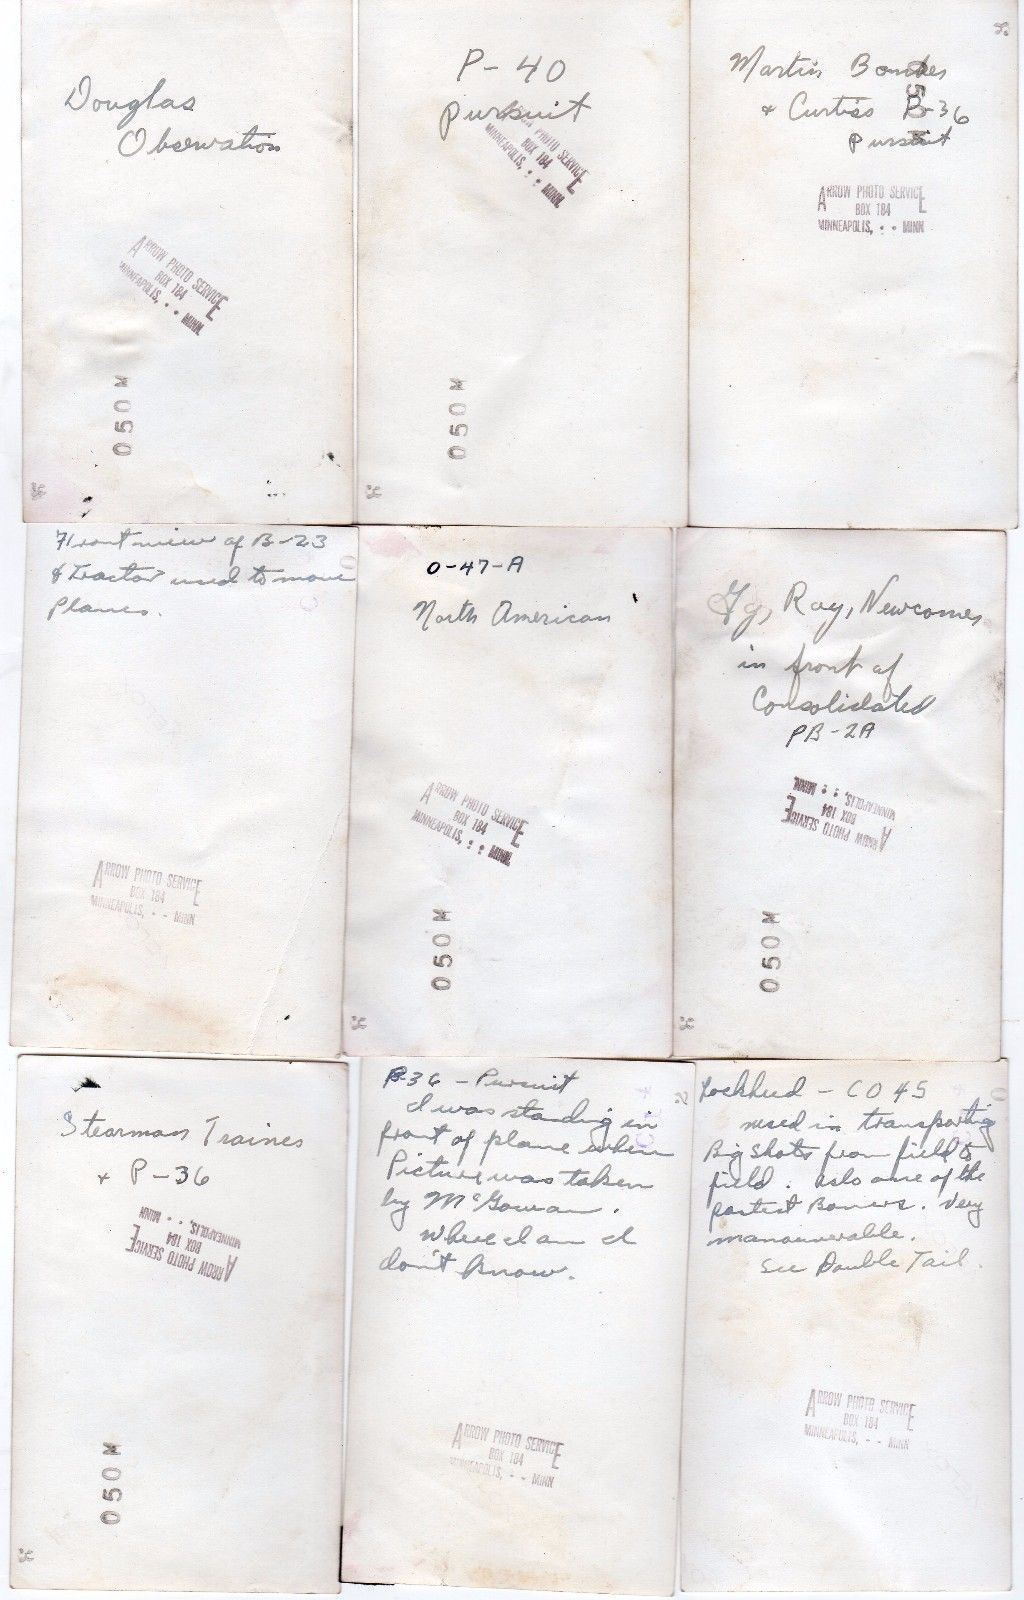 Douglas
Observation
ARROW PHOTO SERVICE
BOX 184
MINNEAPOLIS, • • MINN.
050M
P-40
pursuit
ARROW PHOTO SERVICE
BOX 184
MINNEAPOLIS, : : MINN.
050M
Martin Bomber
+ Curtiss P-36
pursuit
ARROW PHOTO SERVICE
BOX 184
MINNEAPOLIS, • • MINN
Front view of B-23
& Tractor used to move
planes.
ARROW PHOTO SERVICE
BOX 184
MINNEAPOLIS, - - MINN
O-47-A
North American
ARROW PHOTO SERVICE
BOX 184
MINNEAPOLIS, : : MINN.
050M
Ray, Newcomer
in front of
Consolidated
PB-2A
ARROW PHOTO SERVICE
BOX 184
MINNEAPOLIS, : : MINN.
050M
Stearman Trainer
+ P-36
ARROW PHOTO SERVICE
BOX 184
MINNEAPOLIS, • • MINN
050M
P-36 - Pursuit
I was standing in
front of plane when
Picture was taken
by McGowan.
where I am I
don't know.
ARROW PHOTO SERVICE
BOX 184
MINNEAPOLIS, - - MINN
Lockheed - CO45
used in transporting
Big Shots from field to
field. one of the
Very
manouverable.
See Double Tail.
ARROW PHOTO SERVICE
BOX 184
MINNEAPOLIS, - - MINN